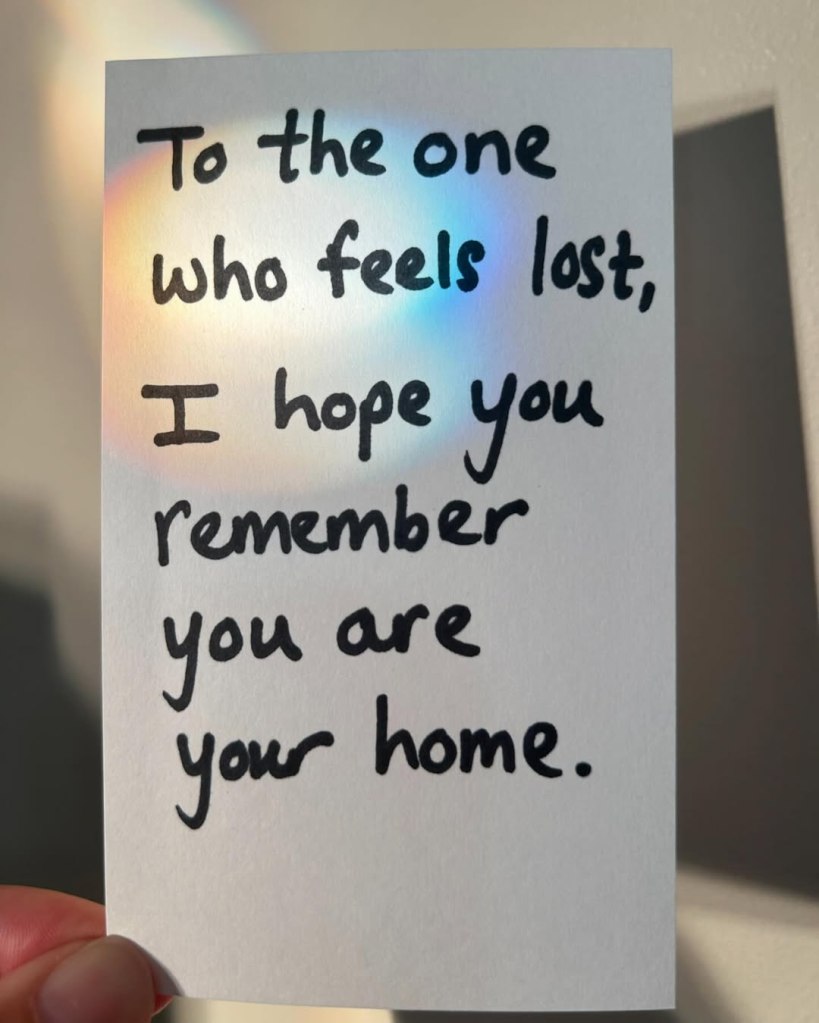 To the one
who feels lost,
I hope you
remember
you are
your home.